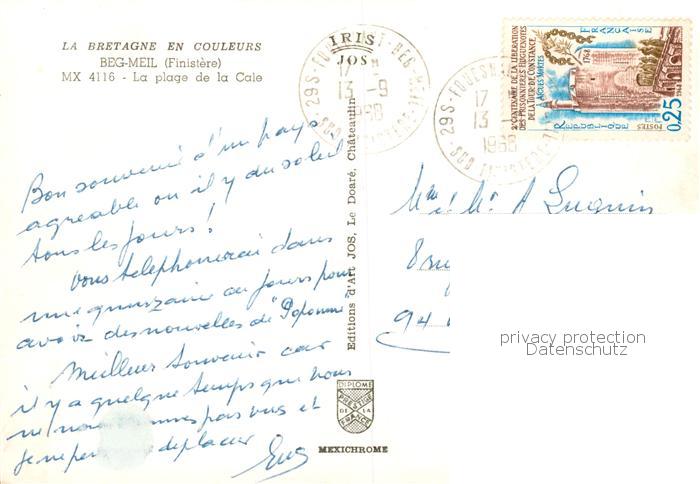 LA BRETAGNE EN COULEURS
BEG-MEIL (Finistère)
MX 4116 - La plage de la Cale
IRIS
JOS
29 S - FOUESNANT-BEG-MEIL
17 H
13 -9
1968
SUD FINISTERE
29 S - FOUESN
17
13
1968
SUD FINISTERE
2e CENTENAIRE DE LA LIBERATION
DES PRISONNIERES HUGUENOTES
DE LA TOUR DE CONSTANCE
AIGUES MORTES
1768
REPUBLIQUE FRANÇAISE
POSTES
0,25
1968
Bon souvenir d'un pays
agreable ou il y du soleil
tous les jours !
Vous telephonerai dans
une quinzaine de jours pour
avoir des nouvelles de
Meilleur souvenir car
il y a quelque temps que nous
ne nous sommes pas vus et
je ne deplacer
Editions d'Art JOS, Le Doaré, Châteaulin
Mme et Mr A
8 rue
94
DIPLOME
PRESTIGE
DE LA
FRANCE
MEXICHROME
privacy protection
Datenschutz